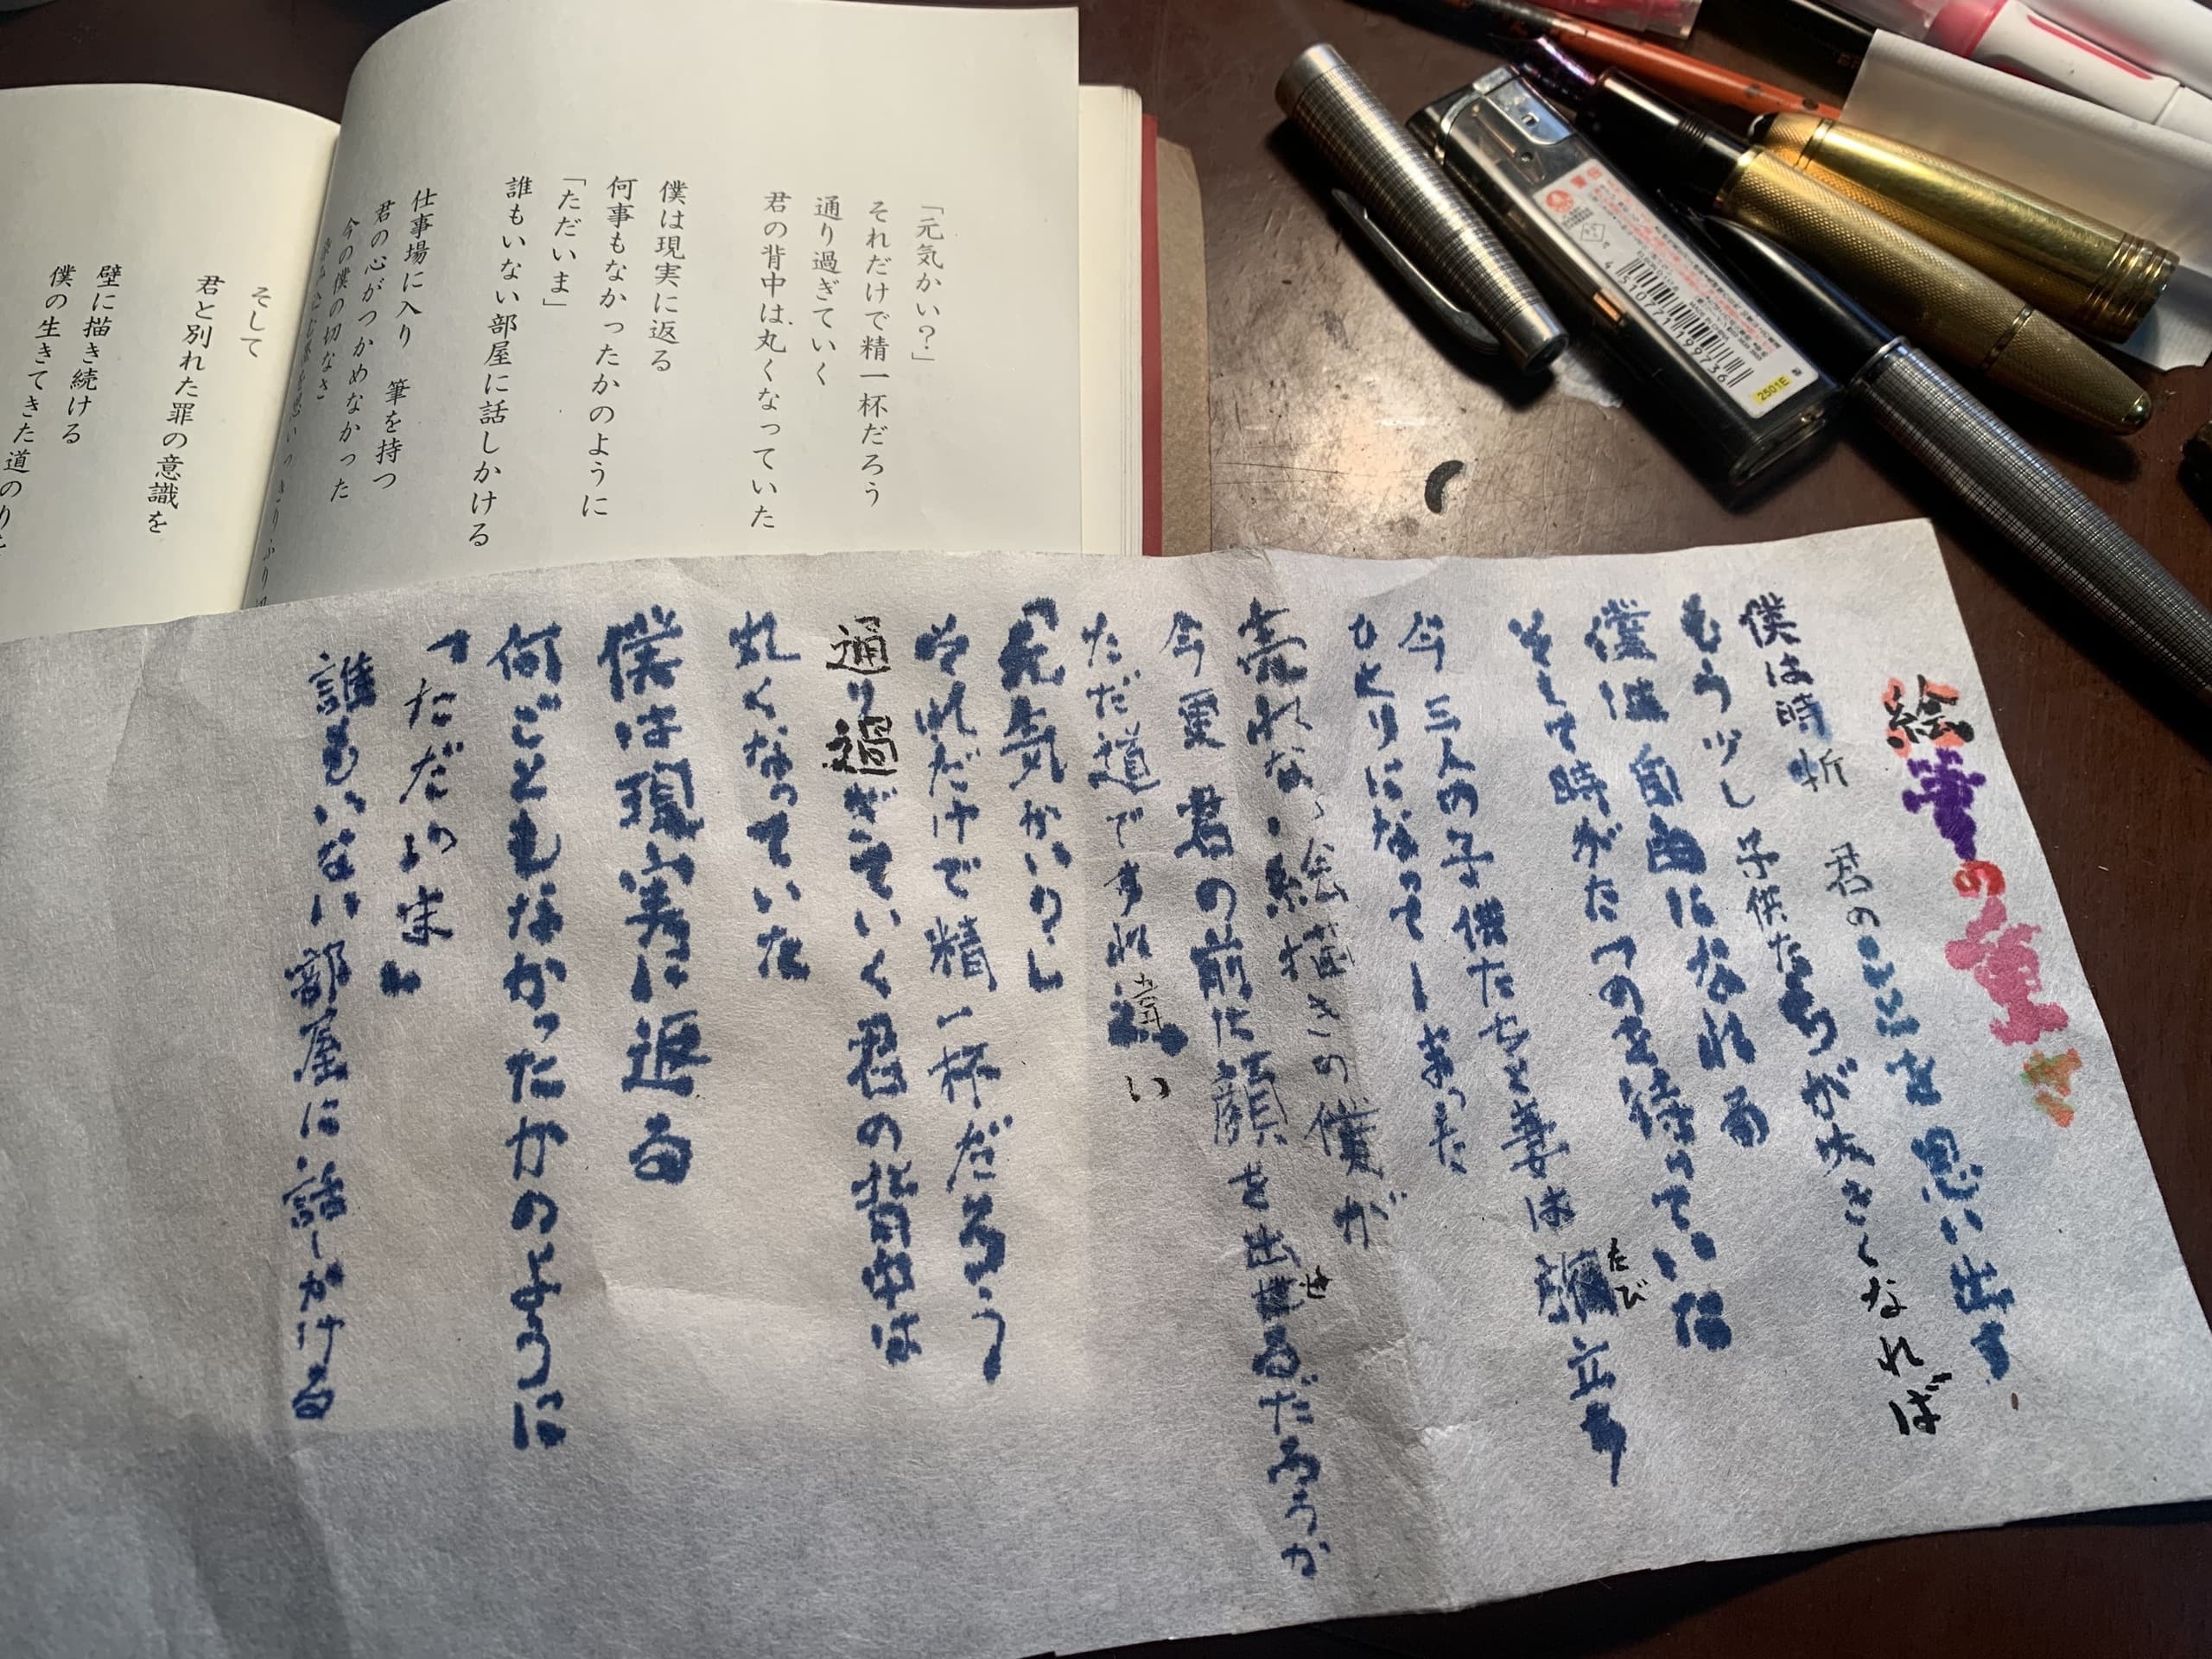 「元気かい？」
それだけで精一杯だろう
通り過ぎていく
君の背中は丸くなっていた
僕は現実に返る
何事もなかったかのように
「ただいま」
誰もいない部屋に話しかける
仕事場に入り 筆を持つ
君の心がつかめなかった
今の僕の切なさ
そして
君と別れた罪の意識を
壁に描き続ける
僕の生きてきた道の
4 510711 199736
2501E
絵筆の重さ
僕は時折 君のことを思い出す
もう少し子供たちが大きくなれば
僕は自由になれる
そして時がたつのを待っていた
今三人の子供たちと妻は旅立ち
たび
ひとりになってしまった
売れない絵描きの僕が
今更君の前に顔を出せるだろうか
せ
ただ道ですれ違い
「元気かい？」
それだけで精一杯だろう
通り過ぎていく君の背中は
丸くなっていた
僕は現実に返る
何ごともなかったかのように
「ただいま」
誰もいない部屋に話しかける